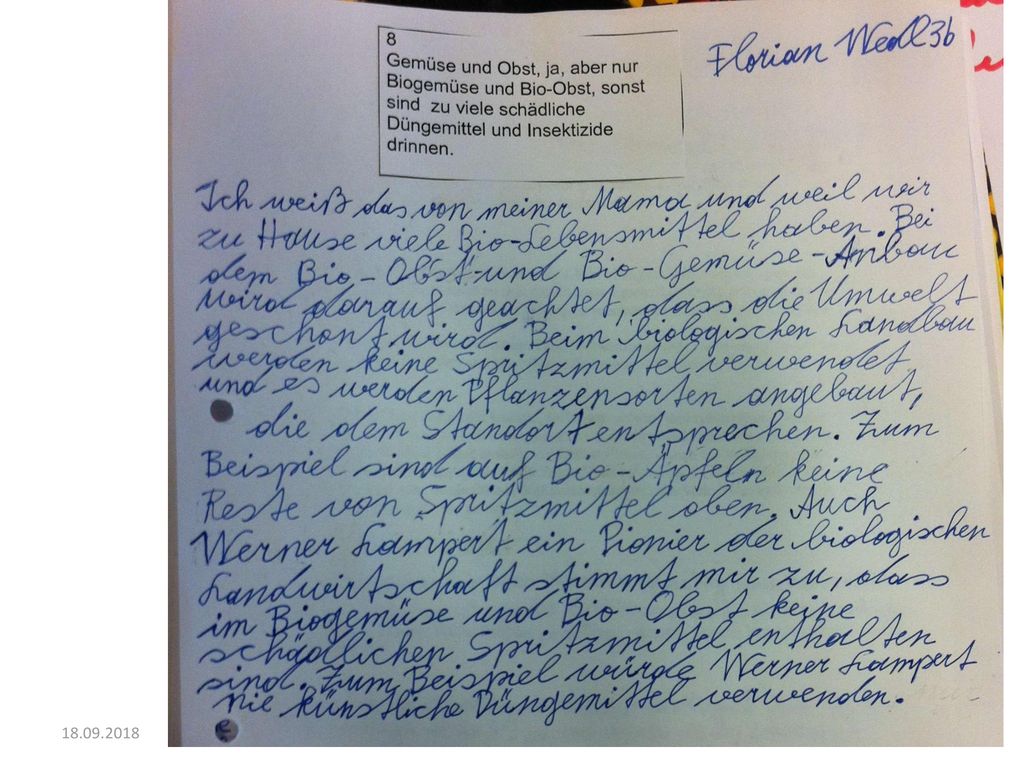 8
Gemüse und Obst, ja, aber nur
Biogemüse und Bio-Obst, sonst
sind zu viele schädliche
Düngemittel und Insektizide
drinnen.
Florian Wedl 3b
Ich weiß das von meiner Mama und weil wir
zu Hause viele Bio-Lebensmittel haben. Bei
dem Bio-Obst-und Bio-Gemüse-Anbau
wird darauf geachtet, dass die Umwelt
geschont wird. Beim biologischen Landbau
werden keine Spritzmittel verwendet
und es werden Pflanzensorten angebaut,
die dem Standort entsprechen. Zum
Beispiel sind auf Bio-Äpfeln keine
Reste von Spritzmittel oben. Auch
Werner Lampert ein Pionier der biologischen
Landwirtschaft stimmt mir zu, dass
im Biogemüse und Bio-Obst keine
schädlichen Spritzmittel enthalten
sind. Zum Beispiel würde Werner Lampert
nie künstliche Düngemittel verwenden.
18.09.2018